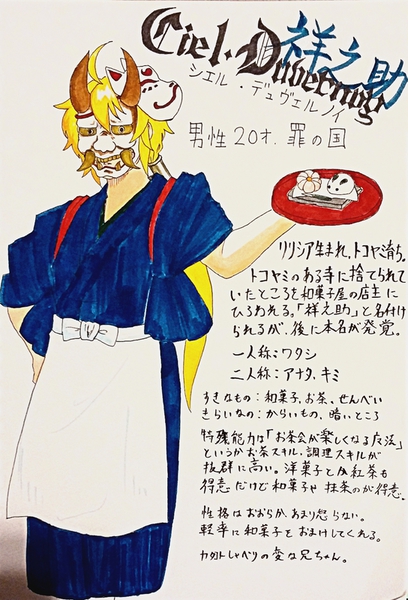 Ciel・Duvernoy
祥之助
シエル・デュヴェルノイ
男性 20才. 罪の国
リリシア生まれ、トコヤミ育ち。
トコヤミのある寺に捨てられて
いたところを和菓子屋の店主に
ひろわれる。「祥之助」と名付け
られるが、後に本名が発覚。
一人称：ワタシ
二人称：アナタ、キミ
すきなもの：和菓子、お茶、せんべい
きらいなの：からいもの、暗いところ
特殊能力は「お茶会が楽しくなる魔法」
というかお茶スキル、調理スキルが
抜群に高い。洋菓子とか紅茶も
得意だけど和菓子や抹茶のが得意。
性格はおおらか、あまり怒らない。
軽率に和菓子をおまけしてくれる。
カタコトしゃべりの変な兄ちゃん。